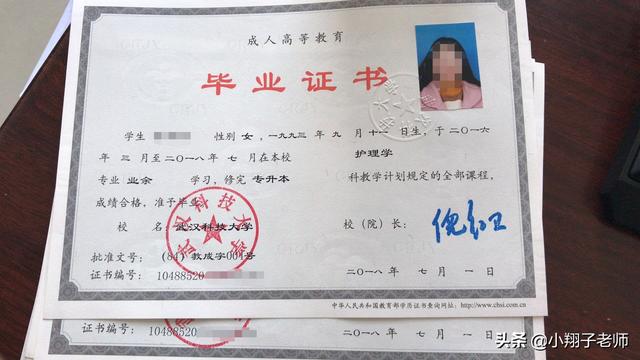 成人高等教育
毕业证书
学生 性别 女，一九九三 年 九 月 十一 日生，于 二〇一六
年 三 月至二〇一八年 七 月在本校 护理学
专业 业余 学习，修完 专升本 科教学计划规定的全部课程，
成绩合格，准予毕业。
校 名：武汉科技大学 校（院）长：
批准文号：(84)教成字001号
证书编号：10488520 二〇一八年 七 月 一 日
中华人民共和国教育部学历证书查询网址：http://www.chsi.com.cn
证书编号：10488520 二〇一八年 七 月 一 日
头条 @小翔子老师